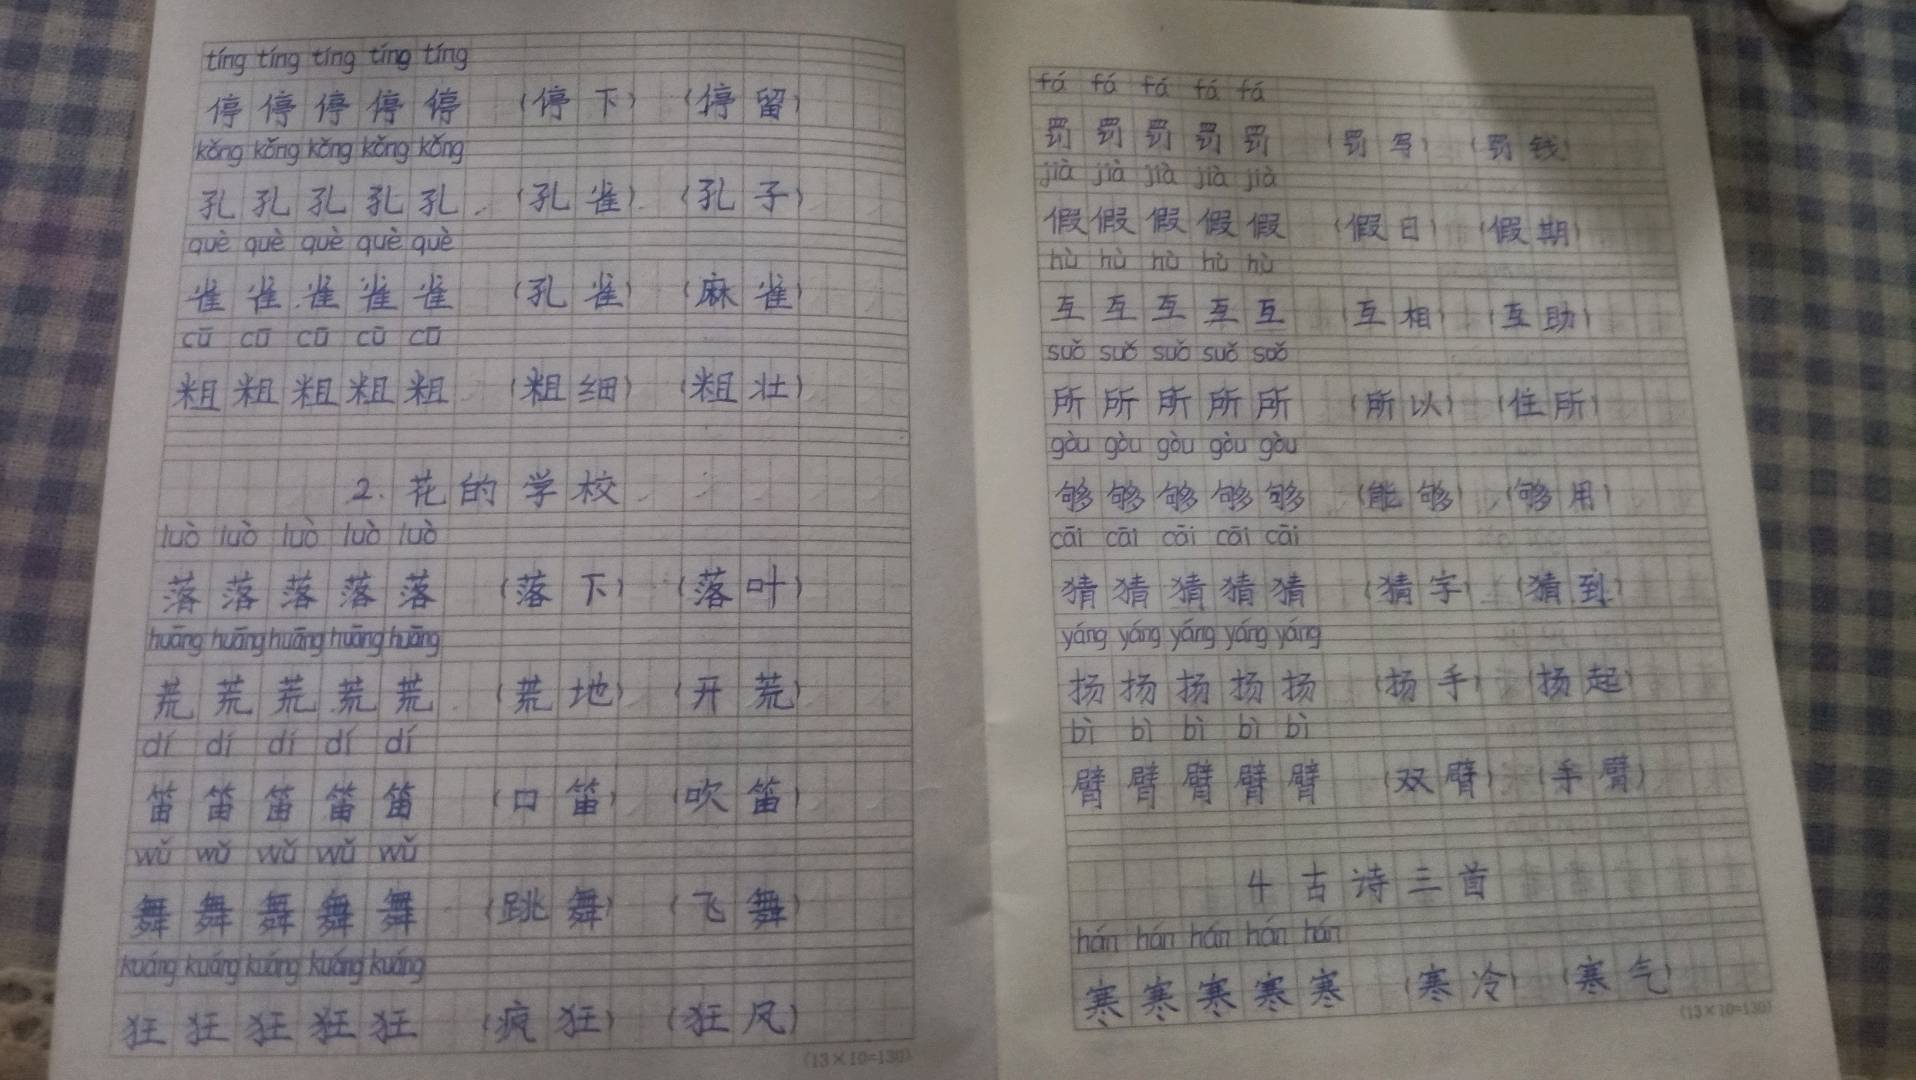 tíng tíng tíng tíng tíng
停 停 停 停 停 (停 下) (停 留)
kǒng kǒng kǒng kǒng kǒng
孔 孔 孔 孔 孔 (孔 雀) (孔 子)
què què què què què
雀 雀 雀 雀 雀 (孔 雀) (麻 雀)
cū cū cū cū cū
粗 粗 粗 粗 粗 (粗 细) (粗 壮)
2. 花 的 学 校
luò luò luò luò luò
落 落 落 落 落 (落 下) (落 叶)
huāng huāng huāng huāng huāng
荒 荒 荒 荒 荒 (荒 地) (开 荒)
dí dí dí dí dí
笛 笛 笛 笛 笛 (口 笛) (吹 笛)
wǔ wǔ wǔ wǔ wǔ
舞 舞 舞 舞 舞 (跳 舞) (飞 舞)
kuáng kuáng kuáng kuáng kuáng
狂 狂 狂 狂 狂 (疯 狂) (狂 风)
(13×10=130)
fá fá fá fá fá
罚 罚 罚 罚 罚 (罚 写) (罚 钱)
jià jià jià jià jià
假 假 假 假 假 (假 日) (假 期)
hù hù hù hù hù
互 互 互 互 互 (互 相) (互 助)
suǒ suǒ suǒ suǒ suǒ
所 所 所 所 所 (所 以) (住 所)
gòu gòu gòu gòu gòu
够 够 够 够 够 (能 够) (够 用)
cāi cāi cāi cāi cāi
猜 猜 猜 猜 猜 (猜 字) (猜 到)
yáng yáng yáng yáng yáng
扬 扬 扬 扬 扬 (扬 手) (扬 起)
bì bì bì bì bì
臂 臂 臂 臂 臂 (双 臂) (手 臂)
4 古 诗 三 首
hán hán hán hán hán
寒 寒 寒 寒 寒 (寒 冷) (寒 气)
(13×10=130)